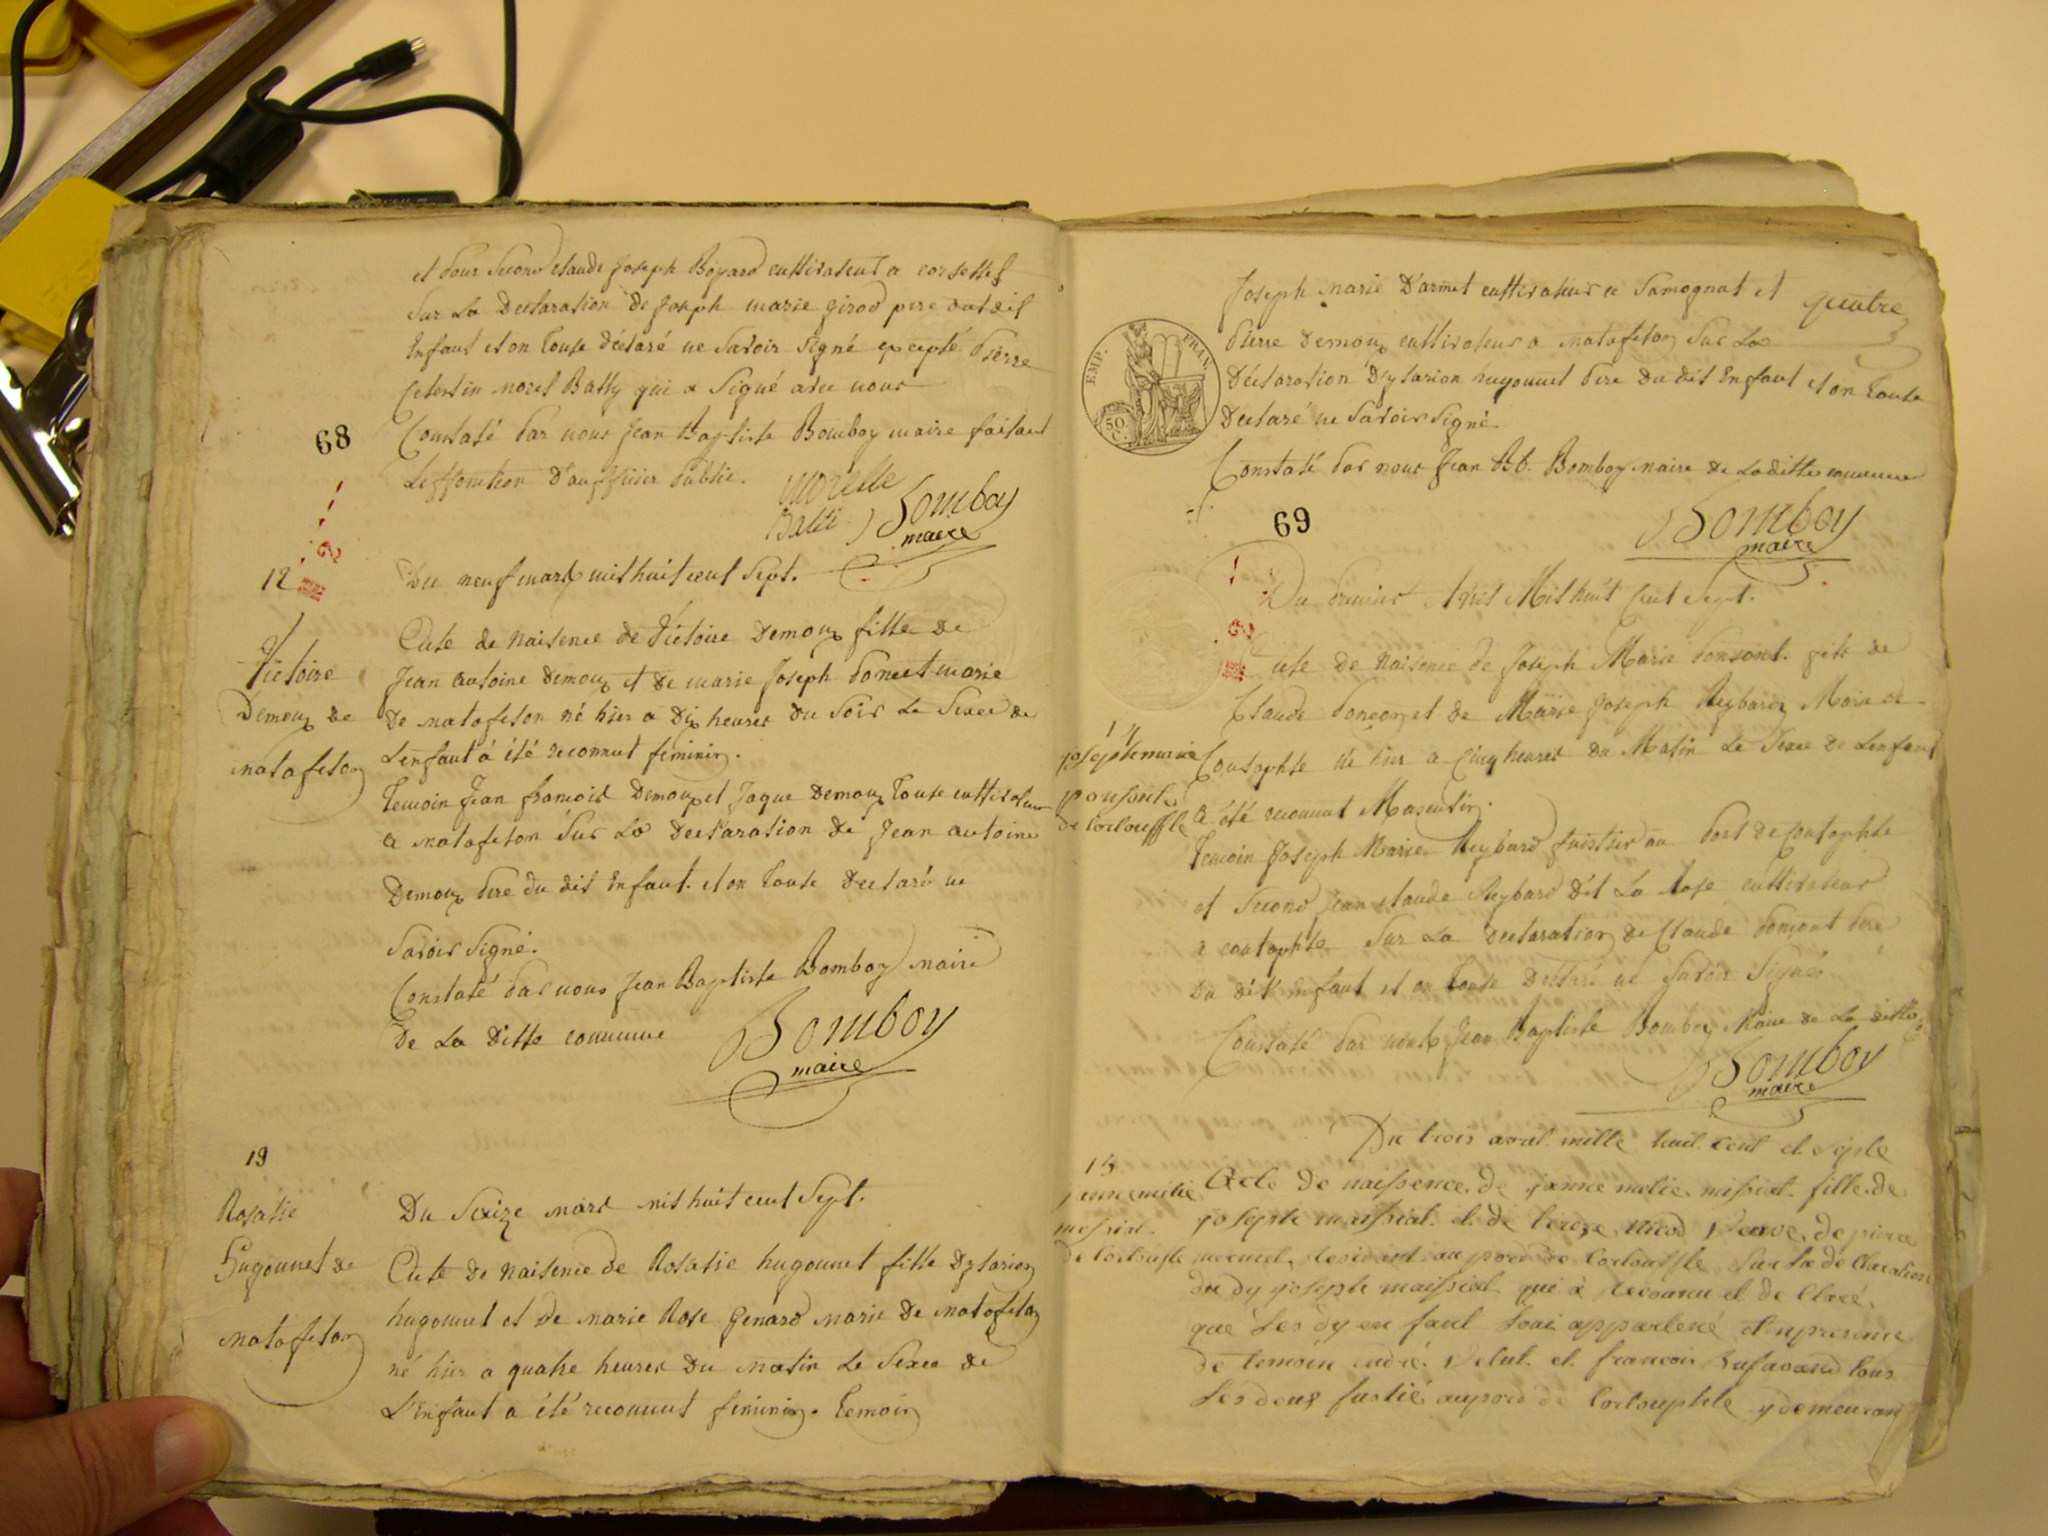 et pour second claude Joseph Boyard cultivateur a
Sur La Declaration de Joseph marie girod pere dudit
Enfant et on touse déclaré ne Savoir Signé excepté Pierre
Celestin morel Bally qui a Signé avec nous
68
Constaté par nous Jean Baptiste Bomboy maire faisant
Les fonction D'auffisier Public.
morelle
Balli
Bomboy
maire
12
Du neuf mars mil huit cent Sept.
Victoire
Demoux de
matafelon
Acte de Naisence de Victoire Demoux fille de
Jean antoine Demoux et de marie Joseph poncet marie
De matafelon né hier a Dix heures du Soir Le Sexee de
Lenfant à été reconnut feminin.
Temoin Jean francois Demoux et Jaque Demoux Touse cultivateur
a matafelon Sur La Declaration de Jean antoine
Demoux Pere du dit Enfant. et on Touse Declaré ne
Savoir Signé.
Constaté par nous Jean Baptiste Bomboy maire
De La Ditte commune
Bomboy
maire
13
Rosalie
hugonnet de
matafelon
Du Seize mars mil huit cent Sept.
Acte De Naisence de Rosalie hugonnet fille Dylarion
hugonnet et De marie Rose Genard marie De matafelon
né hier a quatre heures Du matin Le Sexee de
L'Enfant a été reconnut feminin. Temoin
Joseph marie D'armet cultivateur a Samognat et
quatre
Pierre Demoux cultivateur a matafelon Sur La
Déclaration Dylarion hugonnet Pere Du dit Enfant et on Touse
Declaré ne Savoir Signé.
EMP. FRAN.
50 C.
Constaté par nous Jean Bt. Bomboy maire de Laditte commune
Bomboy
maire
69
Du premier Avril Mil huit Cent Sept.
14
joseph marie
ponsont
Acte De Naisence de Joseph Marie ponsont fils de
Claude ponçon et de Marie Joseph Reybard Marie de
né hier a Cinq heures du Matin Le Sexee de Lenfant
A été reconnut Masculin.
Temoin Joseph Marie Reybard fustier au Port de
et Second Jean claude Reybard Dit La Rose cultivateur
a Sur La declaration de Claude ponçont Pere
Du dit enfant et on Touse Declaré ne Savoir Signé
Constaté par nous Jean Baptiste Bomboy Maire de La ditte
Bomboy
maire
Du trois avril mille huit cent et septe
15
janne melie
missiat
Acte De naissence de janne melie missiat fille de
josepte maissiat et de nicod veuve de pierre
mermet, Resident au pord de Sur la de Claration
du dy josepte maissiat qui à Reconnu et de Claré
que Les dy en fant Louí appartené
De temoin andré et francois tous
Les deux fustié au pord de y demeurant